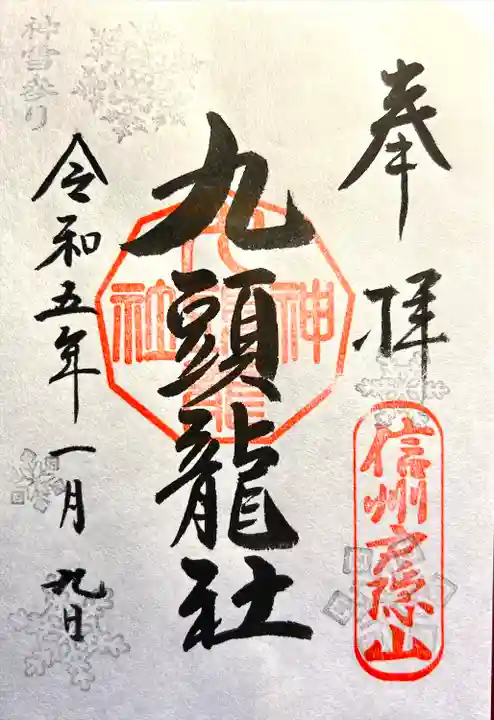 奉拝
信州戸隠山
九頭龍社
令和五年一月九日
神雪参り